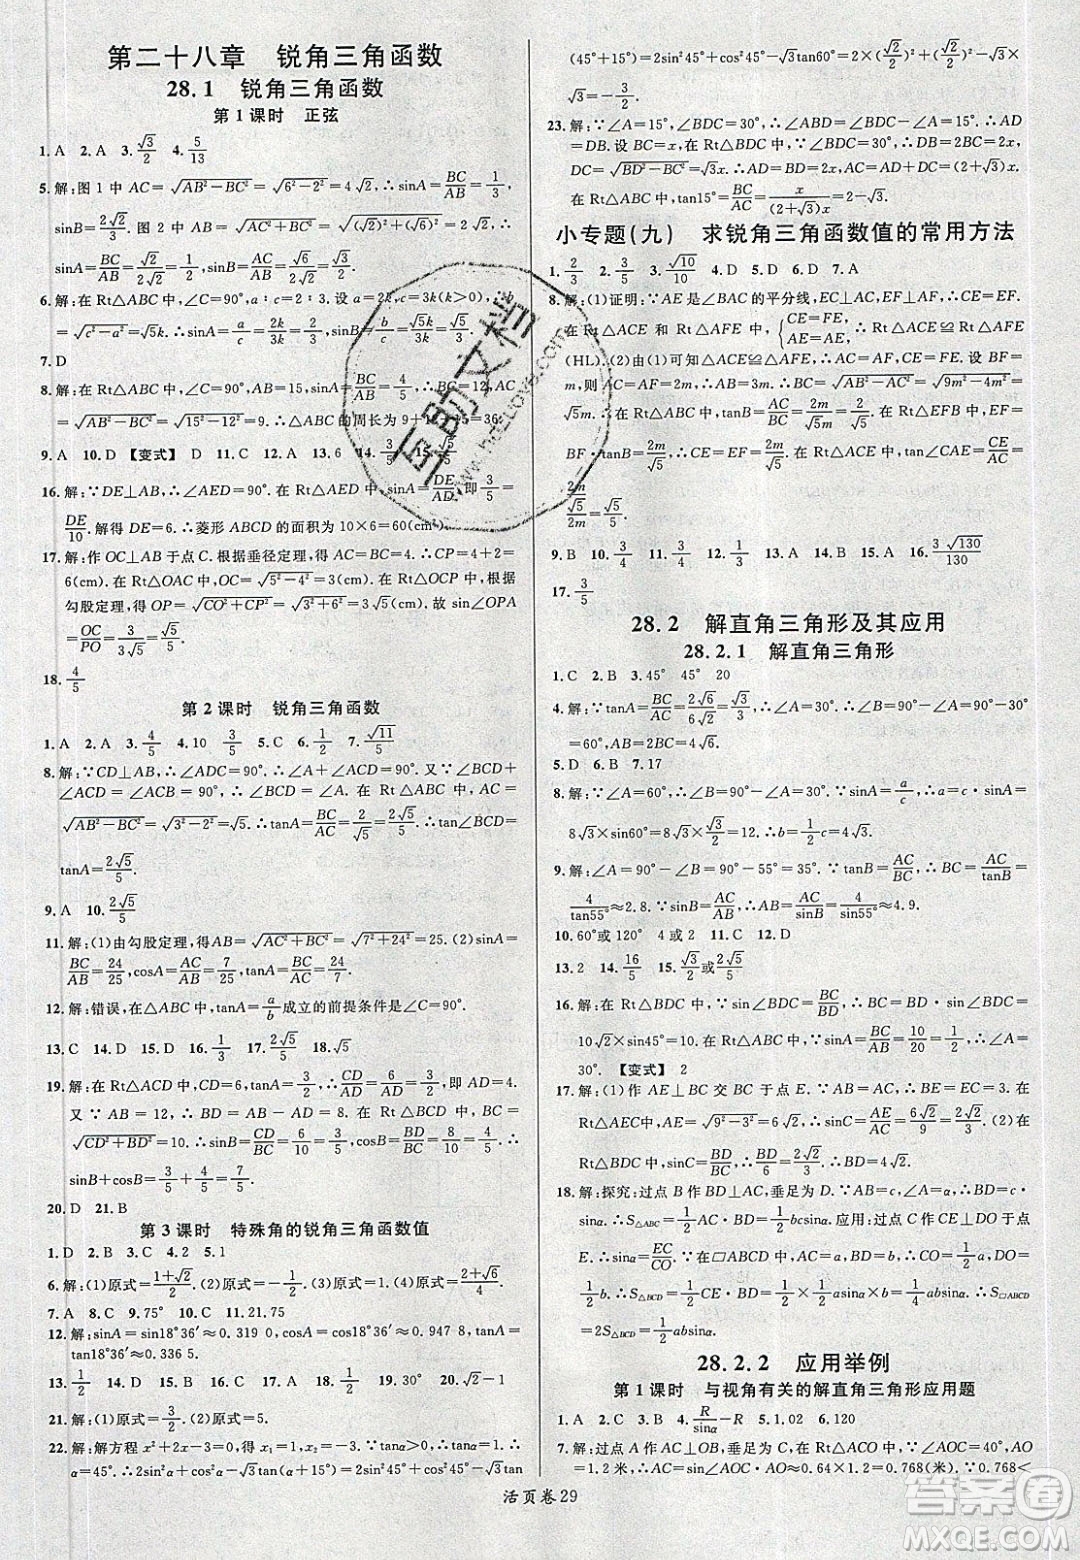 第二十八章 锐角三角函数
28.1 锐角三角函数
第1课时 正弦
1.A 2.A 3.√3/2 4.5/13
5.解:图1中AC=√(AB²-BC²)=√(6²-2²)=4√2,∴sinA=BC/AB=1/3,
sinB=2√2/3.图2中,AB=√(AC²+BC²)=√((√2)²+(√6)²)=2√2,∴
6.解:在Rt△ABC中,∠C=90°,a∶c=2∶3.设a=2k,c=3k(k>0),∴b
=√(c²-a²)=√5k.∴sinA=a/c=2k/3k=2/3,sinB=b/c=√5k/3k=√5/3.
7.D
8.解:在Rt△ABC中,∠C=90°,AB=15,sinA=BC/AB=4/5,∴BC=12,AC
=√(AB²-BC²)=√(15²-12²)=9.∴△ABC的周长为9+12+15=36.
9.A 10.D 【变式】 D 11.C 12.A 13.6
16.解:∵DE⊥AB,∴∠AED=90°.在Rt△AED中,sinA=DE/AD,即3/5=
DE/10.解得DE=6.∴菱形ABCD的面积为10×6=60(cm²).
17.解:作OC⊥AB于点C.根据垂径定理,得AC=3cm.∴CP=4+2=
6(cm).在Rt△OAC中,OC=√(5²-4²)=3(cm).在Rt△OCP中,根据
勾股定理,得OP=√(CO²+CP²)=√(3²+6²)=3√5(cm).故sin∠OPA
=OC/PO=3/(3√5)=√5/5.
18.4/5
第2课时 锐角三角函数
1.A 2.A 3.4/5 4.10 3/5 5.C 6.1/2 7.√11/5
8.解:∵CD⊥AB,∴∠ADC=90°.∴∠A+∠ACD=90°.又∵∠BCD+
∠ACD=90°,∴∠BCD=∠A.在Rt△ABC中,∠ACB=90°,∴AC=
√(AB²-BC²)=√(3²-2²)=√5.∴tanA=BC/AC=2/√5=2√5/5.∴tan∠BCD=
tanA=2√5/5.
9.A 10.2√5/5
11.解:(1)由勾股定理,得AB=√(AC²+BC²)=√(7²+24²)=25.(2)sinA=
BC/AB=24/25,cosA=AC/AB=7/25,tanA=BC/AC=24/7.
12.解:错误,在△ABC中,tanA=a/b成立的前提条件是∠C=90°.
13.C 14.D 15.D 16.1/3 17.2√5/5 18.√5/5
19.解:在Rt△ACD中,CD=6,tanA=3/2,∴CD/AD=6/AD=3/2,即AD=4.
又∵AB=12,∴BD=AB-AD=8.在Rt△BCD中,BC=
√(CD²+BD²)=10.∴sinB=CD/BC=6/10=3/5,cosB=BD/BC=8/10=4/5.∴sinB+
cosB=3/5+4/5=7/5.
20.D 21.B
第3课时 特殊角的锐角三角函数值
1.D 2.B 3.C 4.2 5.1
6.解:(1)原式=(1+√2)/2.(2)原式=-1/2.(3)原式=1/2.(4)原式=(2+√6)/4.
7.A 8.C 9.75° 10.C 11.21.75
12.解:sinA=sin18°36′≈0.3190,cosA=cos18°36′≈0.9478,tanA=
tan18°36′≈0.3365.
13.1/2 14.D 15.A 16.D 17.C 18.A 19.60° 20.1/2
21.解:(1)原式=1/2.(2)原式=5.
22.解:解方程x²-2x+1=0,得x₁=x₂=1.∵tanα>0,∴tanα=1.∴
∠α=45°.∴2sin²α+cos²α-√3tan(α+15°)=2sin²45°+cos²45°-√3tan
(45°+15°)=2sin²45°+cos²45°-√3tan60°=2×(√2/2)²+(√2/2)²-√3
×√3=-3/2.
23.解:∵∠A=15°,∠BDC=30°,∴∠ABD=30°-15°=15°.∴AD
=DB.设BC=x,在Rt△BDC中,∵∠BDC=30°,∴AD=DB=2BC=2x,
DC=√(BD²-BC²)=√3x.在Rt△ABC中,tan15°=BC/AC=x/((2+√3)x)=2-√3.
小专题(九) 求锐角三角函数值的常用方法
1.2/3 2.2/3 3.√10/10 4.D 5.D 6.D 7.A
8.解:(1)证明:∵AE是∠BAC的平分线,EC⊥AC,EF⊥AF,∴CE=EF.
在Rt△ACE和Rt△AFE中,{CE=FE, AE=AE,∴Rt△ACE≌Rt△AFE
(HL).(2)由(1)可知△ACE≌△AFE,∴AC=AF,CE=EF.设BF=
m,则AC=2m,AF=2m,AB=3m,∴BC=√(AB²-AC²)=√(9m²-4m²)=
√5m.∴在Rt△ABC中,tanB=AC/BC=2m/(√5m)=2/√5.在Rt△EFB中,EF=
BF·tanB=2m/√5.∴CE=EF=2m/√5.在Rt△ACE中,tan∠CAE=CE/AC=
(2m/√5)/2m=√5/5.
9.B 10.3/4 11.3/4 12.1/3 13.A 14.A 15.A 16.3√130/130
17.3/5
28.2 解直角三角形及其应用
28.2.1 解直角三角形
1.C 2.B 3.45° 45° 20
4.解:∵tanA=BC/AC=2√6/6√2=√3/3,∴∠A=30°.∴∠B=90°-∠A=90°-30°
=60°,AB=2BC=4√6.
5.D 6.B 7.17
8.解:∵∠A=60°,∴∠B=90°-∠A=30°.∵sinA=a/c,∴a=c·sinA=
8√3×sin60°=8√3×√3/2=12.∴b=1/2c=1/2×8√3=4√3.
9.解:∠A=90°-∠B=90°-55°=35°.∵tanB=AC/BC,∴BC=AC/tanB=
4/tan55°≈2.8.∵sinB=AC/AB,∴AB=AC/sinB=4/sin55°≈4.9.
10.60°或120° 4或2 11.C 12.D
13.2 14.16/5 15.√3/2或2√5/5
16.解:在Rt△BDC中,∵sin∠BDC=BC/BD,∴BC=BD·sin∠BDC=
10√2×sin45°=10.在Rt△ABC中,∵sin∠A=BC/AB=10/20=1/2,∴∠A=
30°. 【变式】 2
17.解:(1)作AE⊥BC交BC于点E.∵AB=AC,∴BE=EC=3.在
Rt△AEC中,AE=√(9²-3²)=√72=6√2,∴sinC=AE/AC=6√2/9=2√2/3.(2)在
Rt△BDC中,sinC=BD/BC,∴BD/6=2√2/3.∴BD=4√2.
18.解:探究:过点B作BD⊥AC,垂足为D.∵AB=c,∠A=α,∴BD=c·
sinα.∴S△ABC=1/2AC·BD=1/2bcsinα.应用:过点C作CE⊥DO,垂足
为E.∴sinα=EC/CO.∵在□ABCD中,AC=a,BD=b,∴CO=1/2a.∴CE=
1/2asinα.∴S△BCD=1/2CE·BD=1/2×1/2asinα×b=1/4absinα.∴S□ABCD
=2S△BCD=1/2absinα.
28.2.2 应用举例
第1课时 与视角有关的解直角三角形应用题
1.A 2.C 3.A 4.R/sinα-R 5.1.02 6.120
7.解:过点A作AC⊥OB,垂足为点C,在Rt△ACO中,∵∠AOC=40°,AO
=1.2米,∴AC=sin∠AOC·AO≈0.64×1.2=0.768(米).∵0.768<
活页卷29